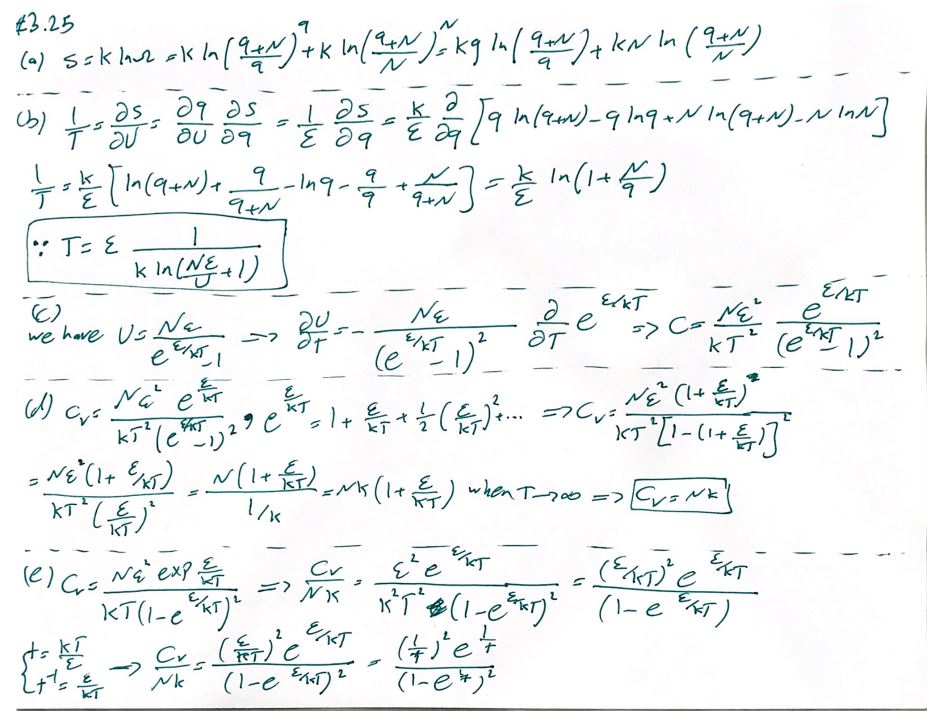 #3.25
(a) S = k lnΩ = k ln((q+N)/q)^q + k ln((q+N)/N)^N = kq ln((q+N)/q) + kN ln((q+N)/N)
(b) 1/T = ∂S/∂U = ∂q/∂U ∂S/∂q = 1/ε ∂S/∂q = k/ε ∂/∂q [q ln(q+N) - q lnq + N ln(q+N) - N lnN]
1/T = k/ε [ln(q+N) + q/(q+N) - lnq - q/q + N/(q+N)] = k/ε ln(1 + N/q)
∵ T = ε 1/(k ln(Nε/U + 1))
(c)
we have U = Nε/(e^(ε/kT) - 1) => ∂U/∂T = - Nε/(e^(ε/kT) - 1)² ∂/∂T e^(ε/kT) => C = Nε²/kT² e^(ε/kT)/(e^(ε/kT) - 1)²
(d) Cv = Nε² e^(ε/kT)/(kT² (e^(ε/kT) - 1)²), e^(ε/kT) = 1 + ε/kT + 1/2 (ε/kT)² + ... => Cv = Nε² (1 + ε/kT)/(kT² [1 - (1 + ε/kT)]²)
= Nε² (1 + ε/kT)/(kT² (ε/kT)²) = N(1 + ε/kT)/(1/k) = Nk(1 + ε/kT) when T→∞ => Cv = Nk
(e) Cv = Nε² exp ε/kT/(kT(1 - e^(ε/kT))²) => Cv/NK = ε² e^(ε/kT)/(k²T² (1 - e^(ε/kT))²) = (ε/kT)² e^(ε/kT)/(1 - e^(ε/kT))
{t = kT/ε, t⁻¹ = ε/kT → Cv/Nk = (ε/kT)² e^(ε/kT)/(1 - e^(ε/kT))² = (1/t)² e^(1/t)/(1 - e^(1/t))²